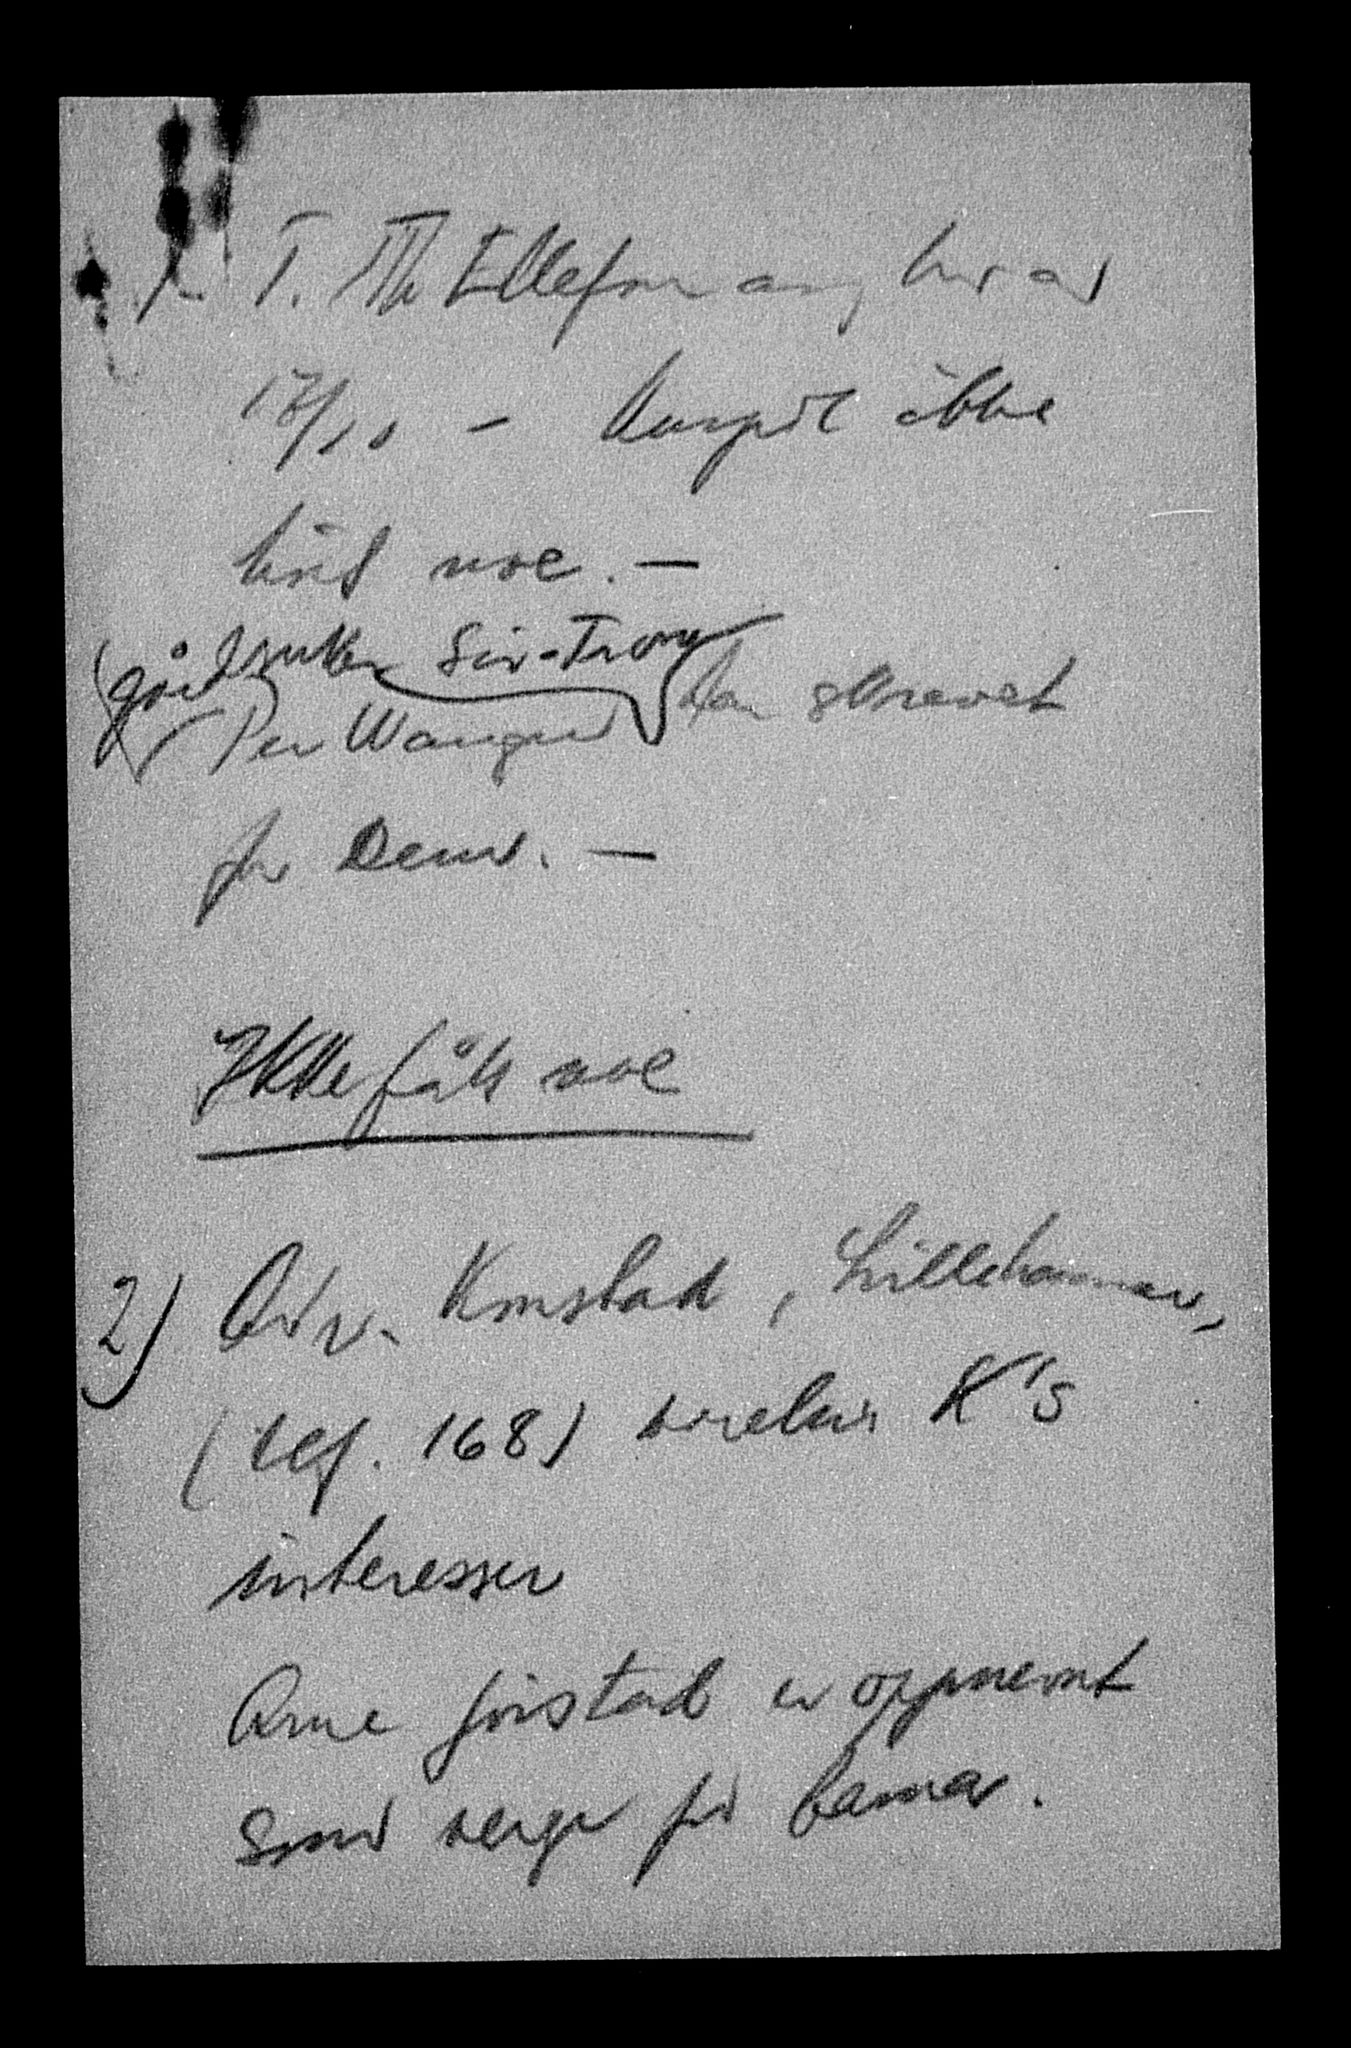 T. Th Ellefsen ang brev av
17/10 – ikke
hørt noe. –
Siv-Trong
(Per Wangen har skrevet
for Dem. –
Ikke fått noe
2) Adv. Konstad, Lillehammer,
(tlf. 168) K's
interesser
Arne Jørstad er oppnevnt
som verge for barna.